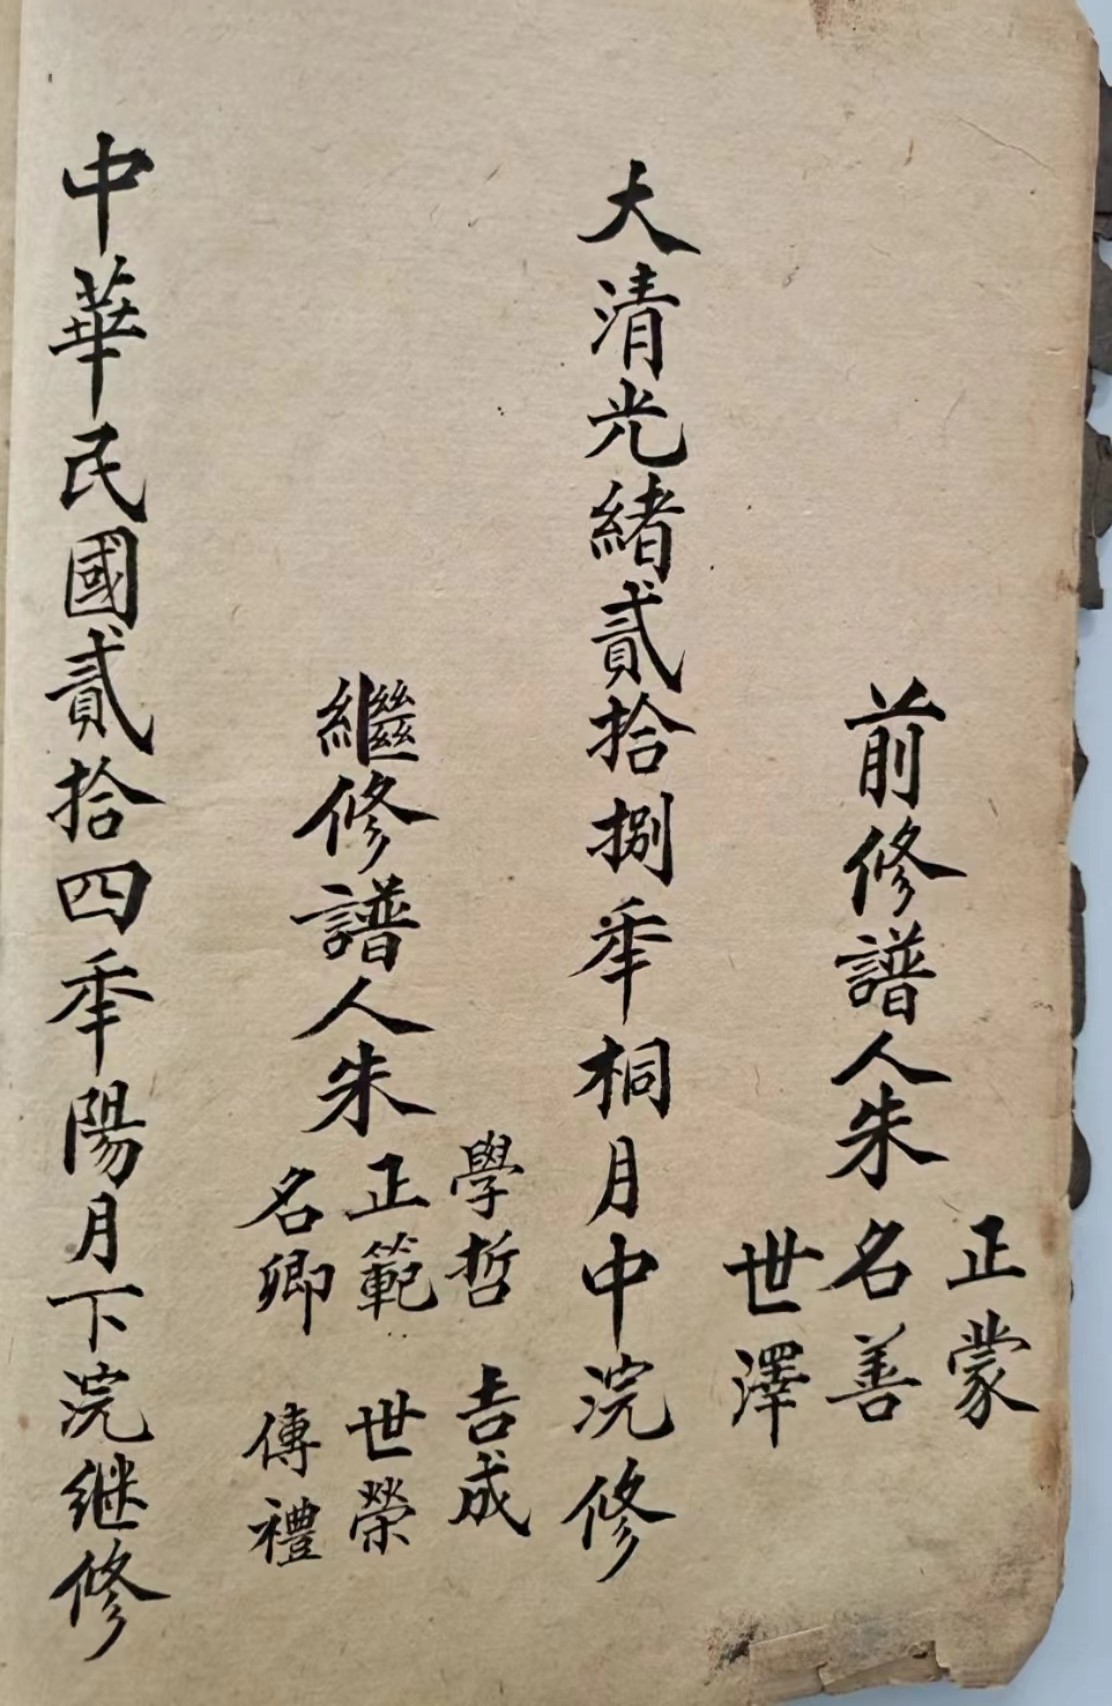 前修譜人朱
正蒙
名善
世澤
大清光緒貳拾捌秊桐月中浣修
繼修譜人朱
學哲 吉成
正範 世榮
名卿 傳禮
中華民國貳拾四秊陽月下浣继修